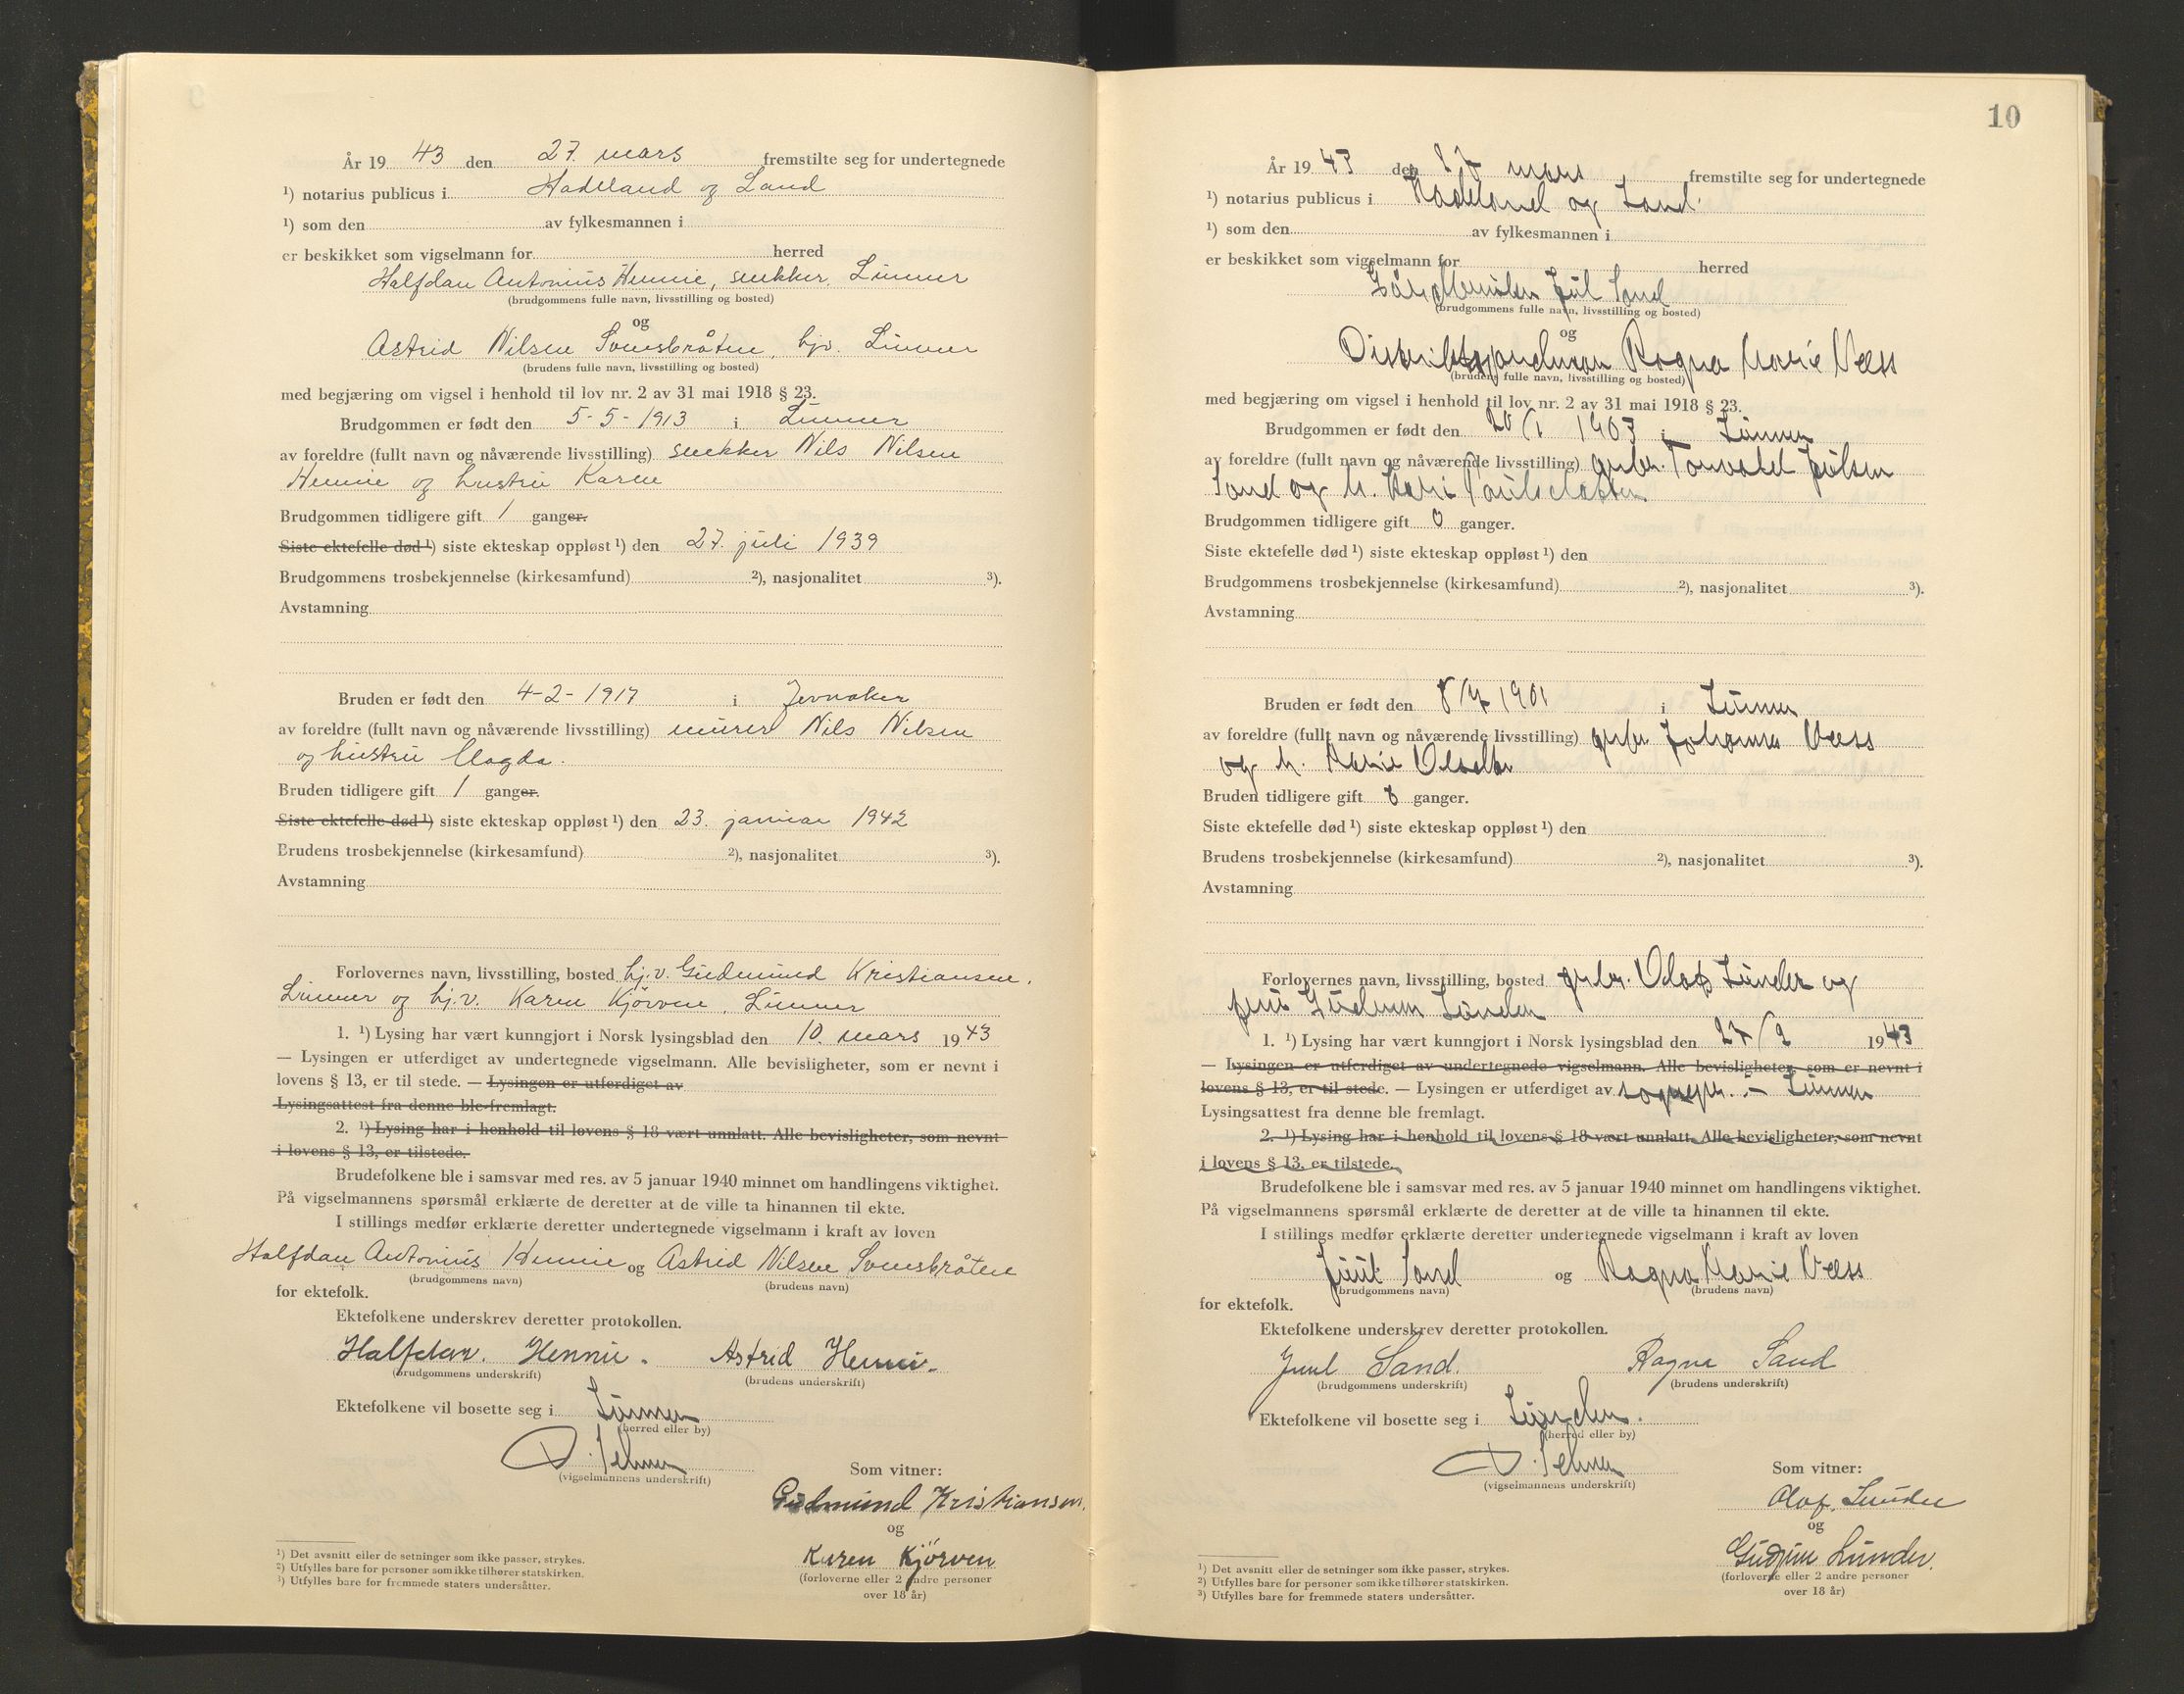 År 19 43 den 27. mars fremstilte seg for undertegnede
¹) notarius publicus i Hadeland og Land
¹) som den av fylkesmannen i
er beskikket som vigselmann for herred
Halfdan Antonius Hennie, snekker, Lunner
(brudgommens fulle navn, livsstilling og bosted)
og
Astrid Nilsen Somsbråten, hjv. Lunner
(brudens fulle navn, livsstilling og bosted)
med begjæring om vigsel i henhold til lov nr. 2 av 31 mai 1918 § 23.
Brudgommen er født den 5-5-1913 i Lunner
av foreldre (fullt navn og nåværende livsstilling) snekker Nils Nilsen
Hennie og hustru Karen
Brudgommen tidligere gift 1 ganger.
Siste ektefelle død ¹) siste ekteskap oppløst ¹) den 27. juli 1939
Brudgommens trosbekjennelse (kirkesamfund) ²), nasjonalitet ³).
Avstamning
Bruden er født den 4-2-1917 i Jevnaker
av foreldre (fullt navn og nåværende livsstilling) murer Nils Nilsen
og hustru Magda.
Bruden tidligere gift 1 ganger.
Siste ektefelle død ¹) siste ekteskap oppløst ¹) den 23. januar 1942
Brudens trosbekjennelse (kirkesamfund) ²), nasjonalitet ³).
Avstamning
Forlovernes navn, livsstilling, bosted hj.v. Gudmund Kristiansen,
Lunner og hj.v. Karen Kjörven, Lunner
1. ¹) Lysing har vært kunngjort i Norsk lysingsblad den 10. mars 1943
— Lysingen er utferdiget av undertegnede vigselmann. Alle bevisligheter, som er nevnt i
lovens § 13, er til stede. — Lysingen er utferdiget av
Lysingsattest fra denne ble fremlagt.
2. ¹) Lysing har i henhold til lovens § 18 vært unnlatt. Alle bevisligheter, som nevnt
i lovens § 13, er tilstede.
Brudefolkene ble i samsvar med res. av 5 januar 1940 minnet om handlingens viktighet.
På vigselmannens spørsmål erklærte de deretter at de ville ta hinannen til ekte.
I stillings medfør erklærte deretter undertegnede vigselmann i kraft av loven
Halfdan Antonius Hennie og Astrid Nilsen Somsbråten
(brudgommens navn) (brudens navn)
for ektefolk.
Ektefolkene underskrev deretter protokollen.
Halfdan. Hennie. Astrid Hennie.
(brudgommens underskrift) (brudens underskrift)
Ektefolkene vil bosette seg i Lunner
(herred eller by)
(vigselmannens underskrift)
Som vitner:
Gudmund Kristiansen.
og
Karen Kjörven
(forloverne eller 2 andre personer
over 18 år)
¹) Det avsnitt eller de setninger som ikke passer, strykes.
²) Utfylles bare for personer som ikke tilhører statskirken.
³) Utfylles bare for fremmede staters undersåtter.
10
År 19 43 den 27 mars fremstilte seg for undertegnede
¹) notarius publicus i Hadeland og Land.
¹) som den av fylkesmannen i
er beskikket som vigselmann for herred
Juul Sand
(brudgommens fulle navn, livsstilling og bosted)
og
Ragna Marie Væss
(brudens fulle navn, livsstilling og bosted)
med begjæring om vigsel i henhold til lov nr. 2 av 31 mai 1918 § 23.
Brudgommen er født den 20/1 1903 i Lunner
av foreldre (fullt navn og nåværende livsstilling) grbr. Torvald Juulsen
Sand og h. Kari
Brudgommen tidligere gift 0 ganger.
Siste ektefelle død ¹) siste ekteskap oppløst ¹) den
Brudgommens trosbekjennelse (kirkesamfund) ²), nasjonalitet ³).
Avstamning
Bruden er født den 8/7 1901 i Lunner
av foreldre (fullt navn og nåværende livsstilling) grbr Johannes Væss
og h. Marie
Bruden tidligere gift 0 ganger.
Siste ektefelle død ¹) siste ekteskap oppløst ¹) den
Brudens trosbekjennelse (kirkesamfund) ²), nasjonalitet ³).
Avstamning
Forlovernes navn, livsstilling, bosted grbr. Olaf Lunder og
fru Gudrun Lunder
1. ¹) Lysing har vært kunngjort i Norsk lysingsblad den 27/2 1943
— Lysingen er utferdiget av undertegnede vigselmann. Alle bevisligheter, som er nevnt i
lovens § 13, er til stede. — Lysingen er utferdiget av sognepr. i Lunner
Lysingsattest fra denne ble fremlagt.
2. ¹) Lysing har i henhold til lovens § 18 vært unnlatt. Alle bevisligheter, som nevnt
i lovens § 13, er tilstede.
Brudefolkene ble i samsvar med res. av 5 januar 1940 minnet om handlingens viktighet.
På vigselmannens spørsmål erklærte de deretter at de ville ta hinannen til ekte.
I stillings medfør erklærte deretter undertegnede vigselmann i kraft av loven
Juul Sand og Ragna Marie Væss
(brudgommens navn) (brudens navn)
for ektefolk.
Ektefolkene underskrev deretter protokollen.
Juul Sand. Ragna Sand
(brudgommens underskrift) (brudens underskrift)
Ektefolkene vil bosette seg i
(herred eller by)
(vigselmannens underskrift)
Som vitner:
Olaf. Lunder
og
Gudrun Lunder.
(forloverne eller 2 andre personer
over 18 år)
¹) Det avsnitt eller de setninger som ikke passer, strykes.
²) Utfylles bare for personer som ikke tilhører statskirken.
³) Utfylles bare for fremmede staters undersåtter.